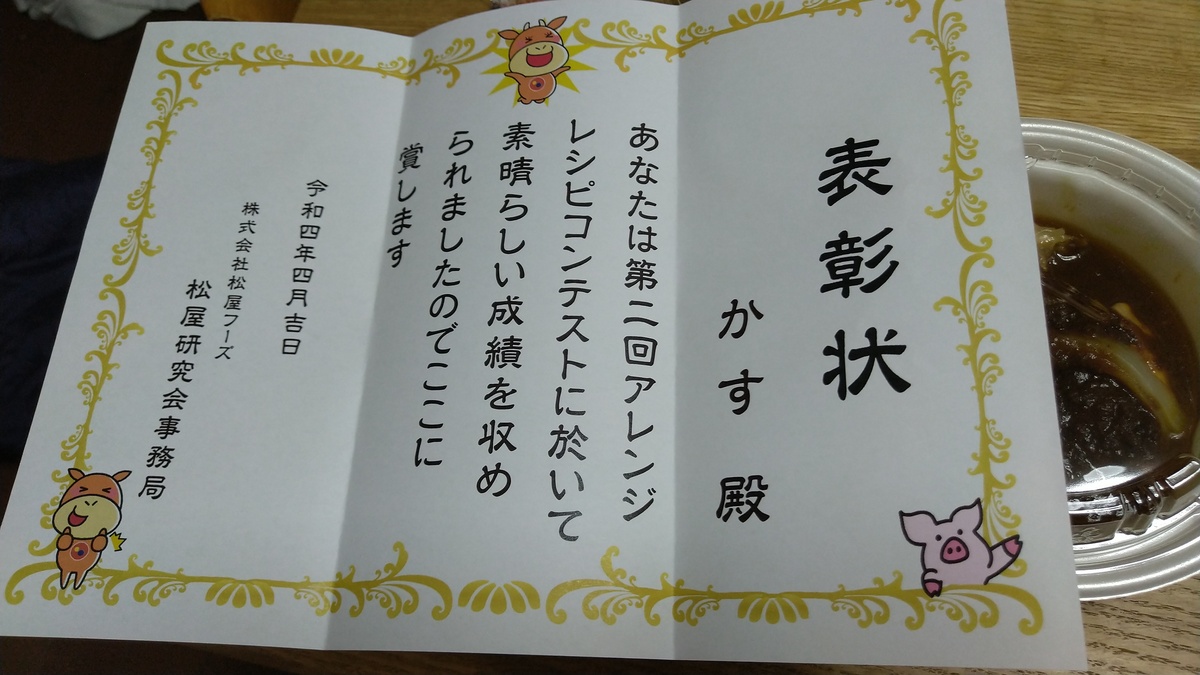 表彰状
かす 殿
あなたは第二回アレンジ
レシピコンテストに於いて
素晴らしい成績を収め
られましたのでここに
賞します
令和四年四月吉日
株式会社松屋フーズ
松屋研究会事務局